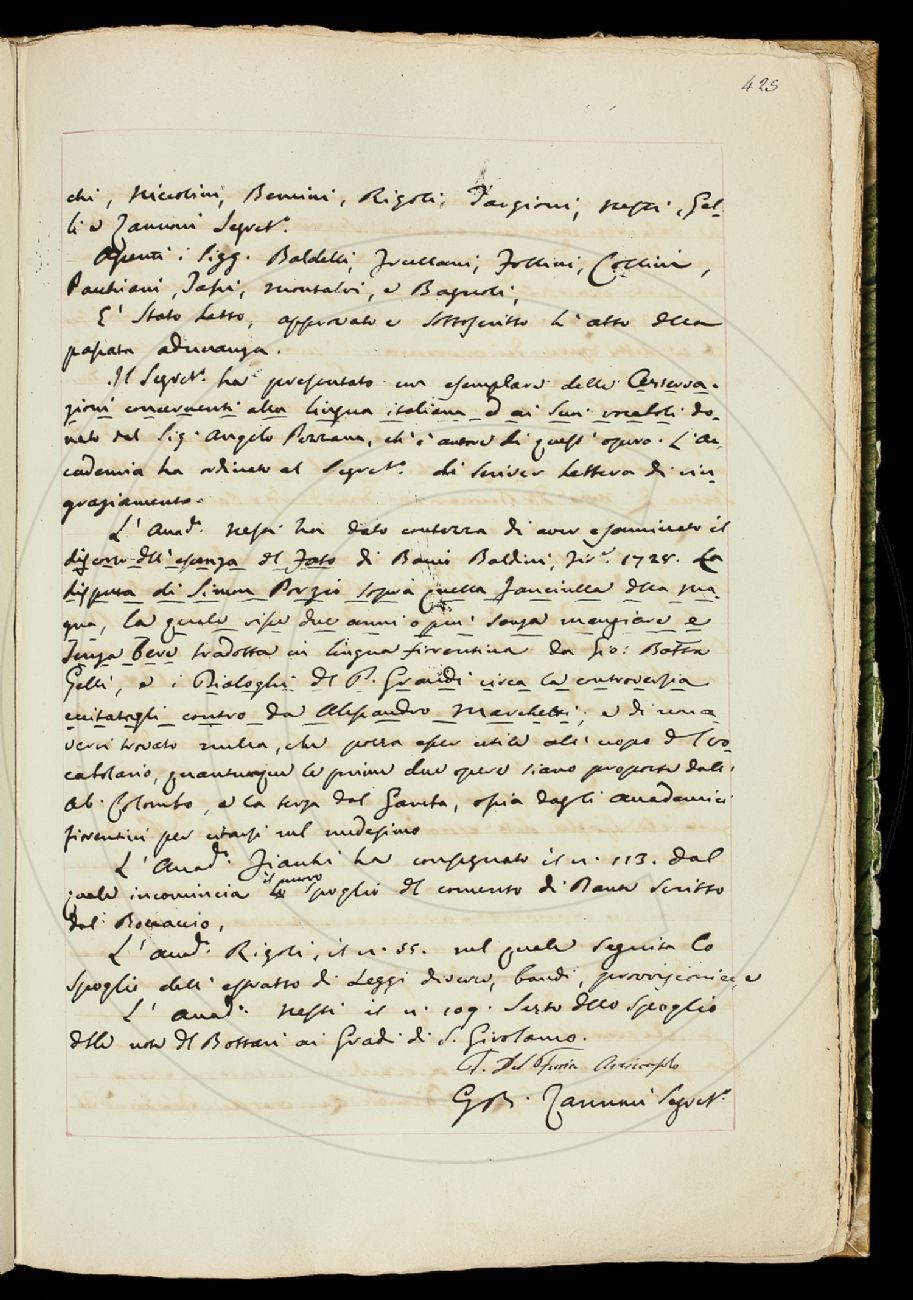 423
chi, Niccolini, Bencini, Rigoli, Targioni, Nesti, Gel-
li e Zannoni Segret.º
Assenti i Sigg. Baldelli, Frullani, Follini, Collini,
Pacchiani, Sassi, Montalvi, e Bagnoli,
E' stato letto, approvato e sottoscritto l'atto della
passata adunanza.
Il Segret.º ha presentato un esemplare delle Osserva-
zioni concernenti alla lingua italiana ed ai suoi vocaboli do-
nato dal Sig. Angelo Pezzana, ch'è autore di quest'opera. L'Ac-
cademia ha ordinato al Segret.º di scriver lettera di rin-
graziamento.
L'Accad.º Nesti ha dato contezza di aver esaminato il
discorso dell'essenza del Fato di Baccio Baldini, Fir.e 1725. La
disputa di Simon Porzio sopra quella fanciulla della Ma-
gna, la quale visse due anni o più senza mangiare e
senza bere tradotta in lingua fiorentina da Gio: Batta
Gelli, e i Dialoghi del P. Grandi circa la controversia
eccitatagli contro da Alessandro Marchetti; e di non a-
vervi trovato nulla, che possa esser utile all'uopo del Vo-
cabolario, quantunque le prime due opere siano proposte dall'
Ab. Colombo, e la terza dal Gamba, ossia dagli Accademici
fiorentini per citarsi nel medesimo
L'Accad.º Fiacchi ha consegnato il n. 113. dal
quale incomincia il nuovo spoglio del comento di Dante scritto
dal Boccaccio,
L'accad.º Rigoli, il n. 55. nel quale seguita lo
spoglio dell'estratto di Leggi diverse, bandi, provvisioni ec, e
L'accad.º Nesti il n. 109. Sesto dello spoglio
delle note del Bottari ai Gradi di S. Girolamo.
F. Del Furia Arciconsolo
GB. Zannoni Segret.º